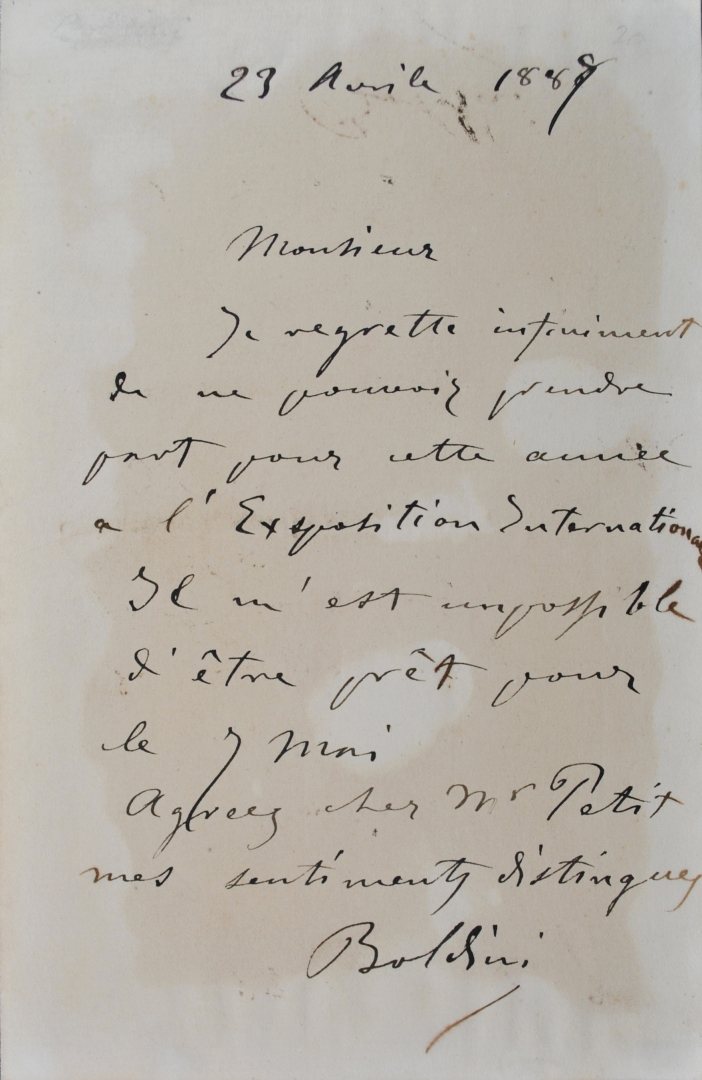 23 Avrile 1889
Monsieur
Je regrette infiniment
de ne pouvoir prendre
part pour cette année
a l'Exsposition Internationa
Il m'est impossible
d'être prêt pour
le 7 Mai
Agreez cher Mr Petit
mes sentiments distingues
Boldini